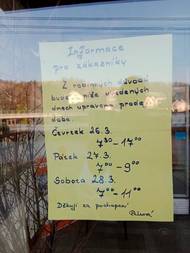 Informace
pro zákazníky
Z rodinných důvodů
bude níže uvedených
dnech upravena prodej.
doba.
Čtvrtek 26.3.
7³⁰-17⁰⁰
Pátek 27.3.
7⁰⁰-9⁰⁰
Sobota 28.3.
7⁰⁰-11⁰⁰
Děkuji za pochopení